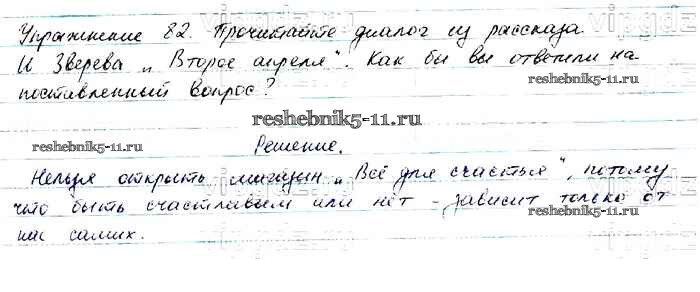 Упражнение 82. Прочитайте диалог из рассказа
И Зверева „Второе апреля". Как бы вы ответили на
поставленный вопрос?
reshebnik5-11.ru
reshebnik5-11.ru
reshebnik5-11.ru
Решение.
Нельзя открыть магазин „Всё для счастья", потому
что быть счастливым или нет - зависит только от
reshebnik5-11.ru
нас самих.